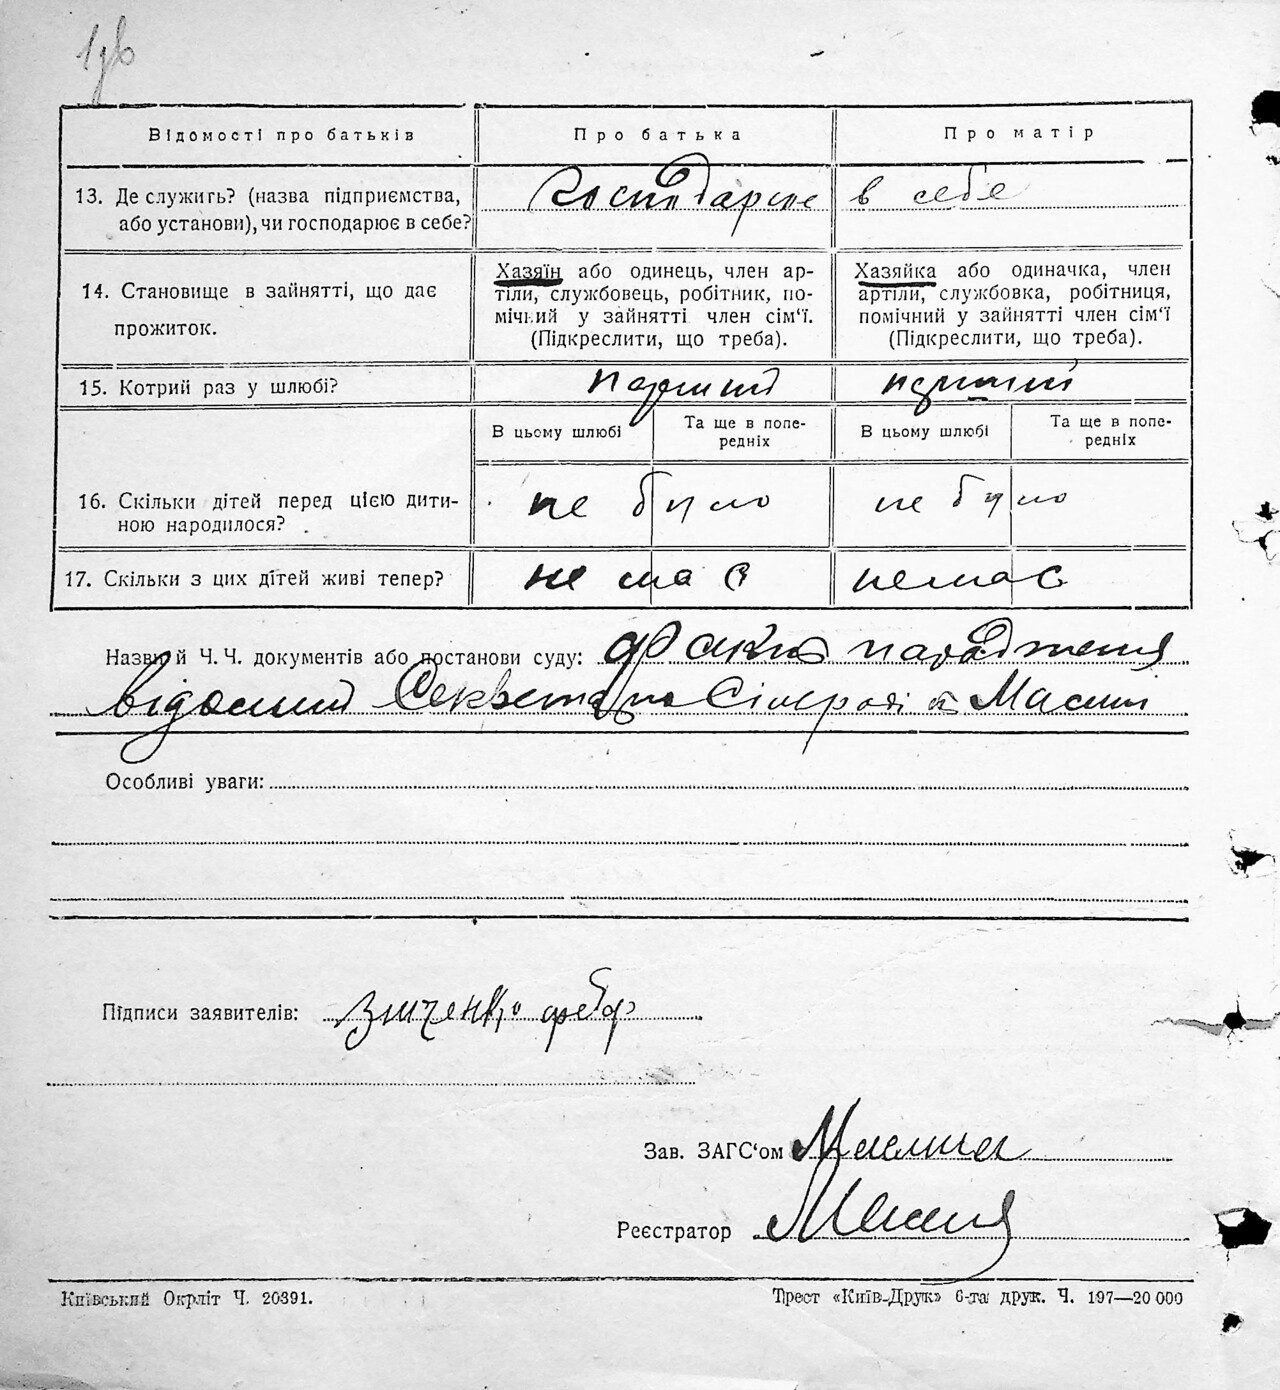 Відомості про батьків
Про батька
Про матір
13. Де служить? (назва підприємства,
або установи), чи господарює в себе?
господарює в себе
14. Становище в зайнятті, що дає
прожиток.
Хазяїн або одинець, член ар-
тіли, службовець, робітник, по-
мічний у зайнятті член сім'ї.
(Підкреслити, що треба).
Хазяйка або одиначка, член
артіли, службовка, робітниця,
помічний у зайнятті член сім'ї
(Підкреслити, що треба).
15. Котрий раз у шлюбі?
перший
перший
В цьому шлюбі
Та ще в попе-
редніх
В цьому шлюбі
Та ще в попе-
редніх
16. Скільки дітей перед цією дити-
ною народилося?
не було
не було
17. Скільки з цих дітей живі тепер?
не має
немає
Назви й Ч. Ч. документів або постанови суду: факт народження
відомий Секретарю Сільради
Особливі уваги:
Підписи заявителів:
Зав. ЗАГС'ом
Реєстратор
Київський Окрліт Ч. 20391.
Трест «Київ-Друк» 6-та друк. Ч. 197—20 000